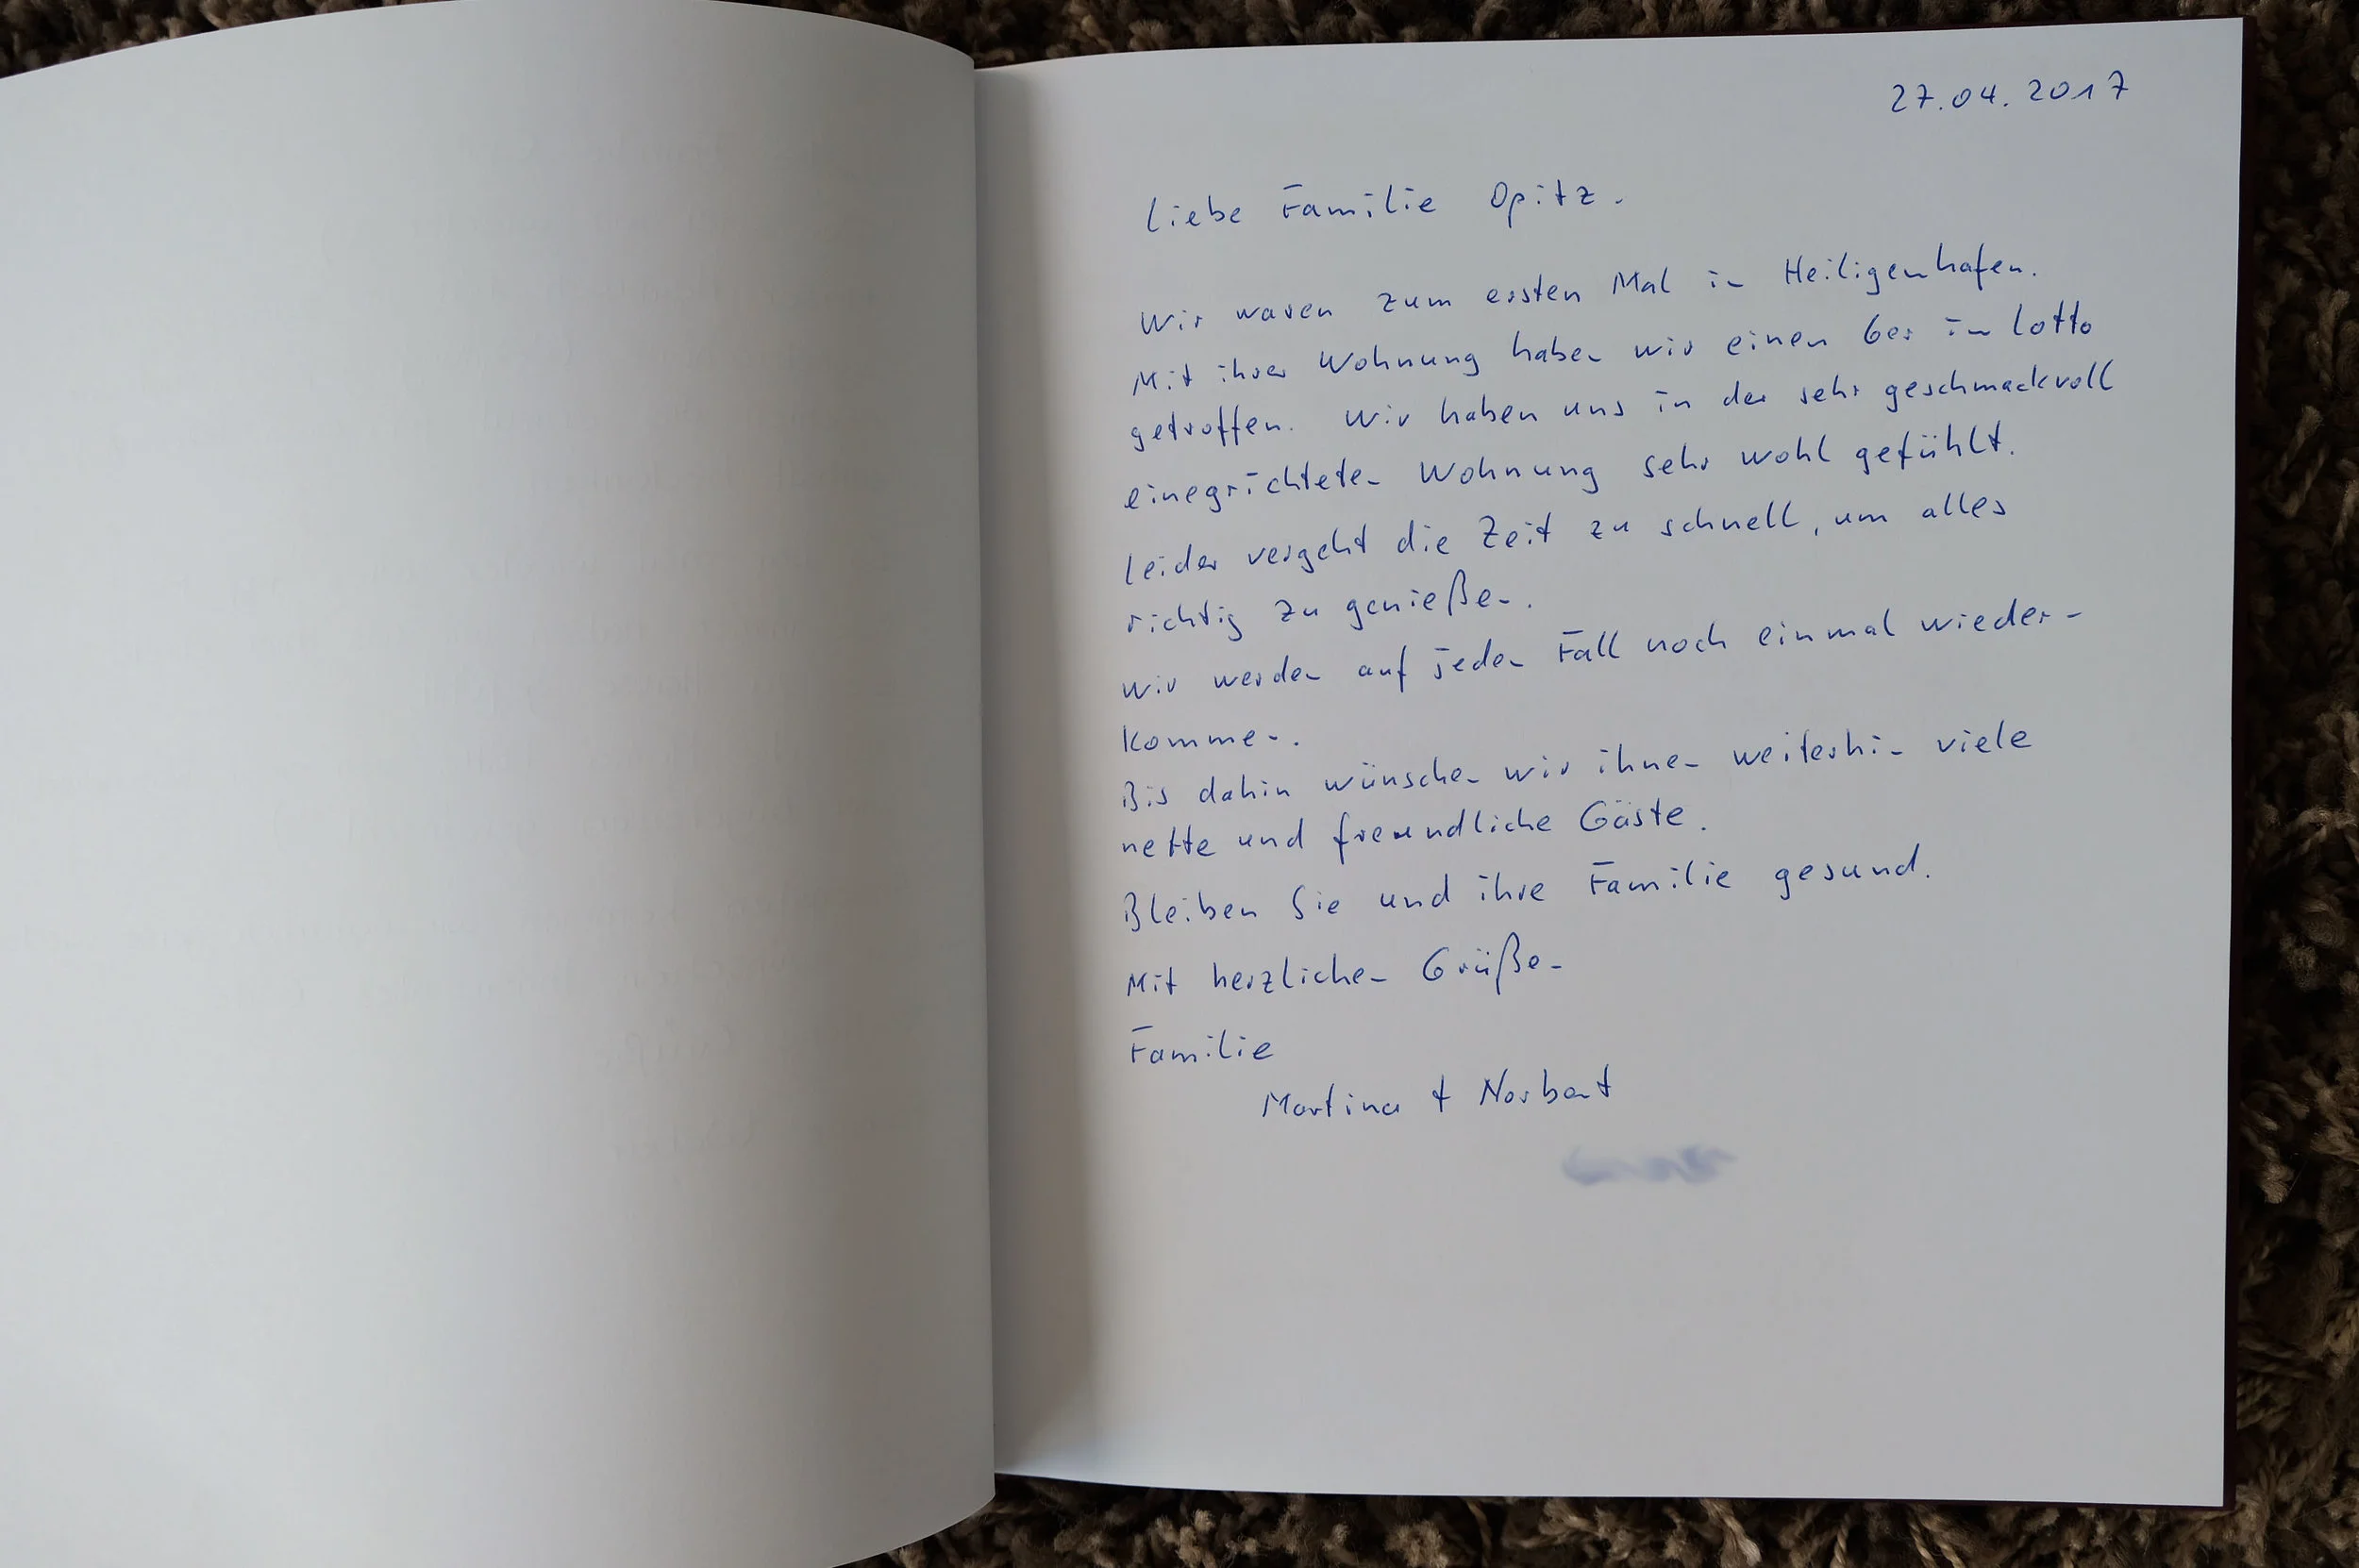 27.04.2017
Liebe Familie Opitz.
Wir waren zum ersten Mal in Heiligenhafen.
Mit ihrer Wohnung haben wir einen 6er im Lotto
getroffen. Wir haben uns in der sehr geschmackvoll
einegrichteten Wohnung sehr wohl gefühlt.
Leider vergeht die Zeit zu schnell, um alles
richtig zu genießen.
Wir werden auf jeden Fall noch einmal wieder-
kommen.
Bis dahin wünschen wir ihnen weiterhin viele
nette und freundliche Gäste.
Bleiben Sie und ihre Familie gesund.
Mit herzlichen Grüßen
Familie
Martina + Norbert